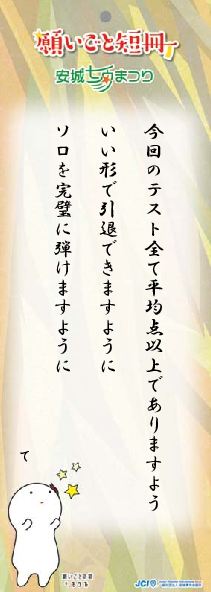 願いごと短冊
安城七夕まつり
今回のテスト全て平均点以上でありますよう
いい形で引退できますように
ソロを完璧に弾けますように
て
願いごと短冊
JCI